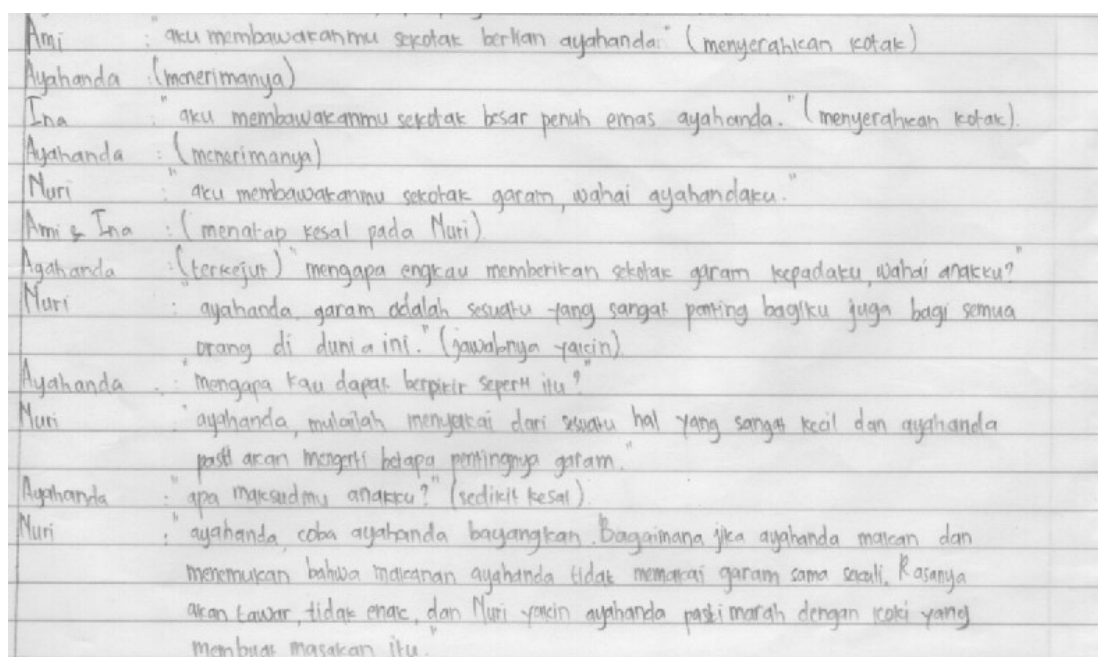 Ami : "aku membawakanmu sekotak berlian ayahanda." (menyerahkan kotak)
Ayahanda : (menerimanya)
Ina : "aku membawakanmu sekotak besar penuh emas ayahanda." (menyerahkan kotak).
Ayahanda : (menerimanya)
Nuri : "aku membawakanmu sekotak garam, wahai ayahandaku."
Ami & Ina : (menatap kesal pada Nuri)
Ayahanda : (terkejut) "mengapa engkau memberikan sekotak garam kepadaku, wahai anakku?"
Nuri : "ayahanda, garam adalah sesuatu yang sangat penting bagiku juga bagi semua
orang di dunia ini." (jawabnya yakin)
Ayahanda : "mengapa kau dapat berpikir seperti itu?"
Nuri : "ayahanda, mulailah menyukai dari sesuatu hal yang sangat kecil dan ayahanda
pasti akan mengerti betapa pentingnya garam."
Ayahanda : "apa maksudmu anakku?" (sedikit kesal)
Nuri : "ayahanda, coba ayahanda bayangkan. Bagaimana jika ayahanda makan dan
menemukan bahwa makanan ayahanda tidak memakai garam sama sekali. Rasanya
akan tawar, tidak enak, dan Nuri yakin ayahanda pasti marah dengan koki yang
membuat masakan itu."